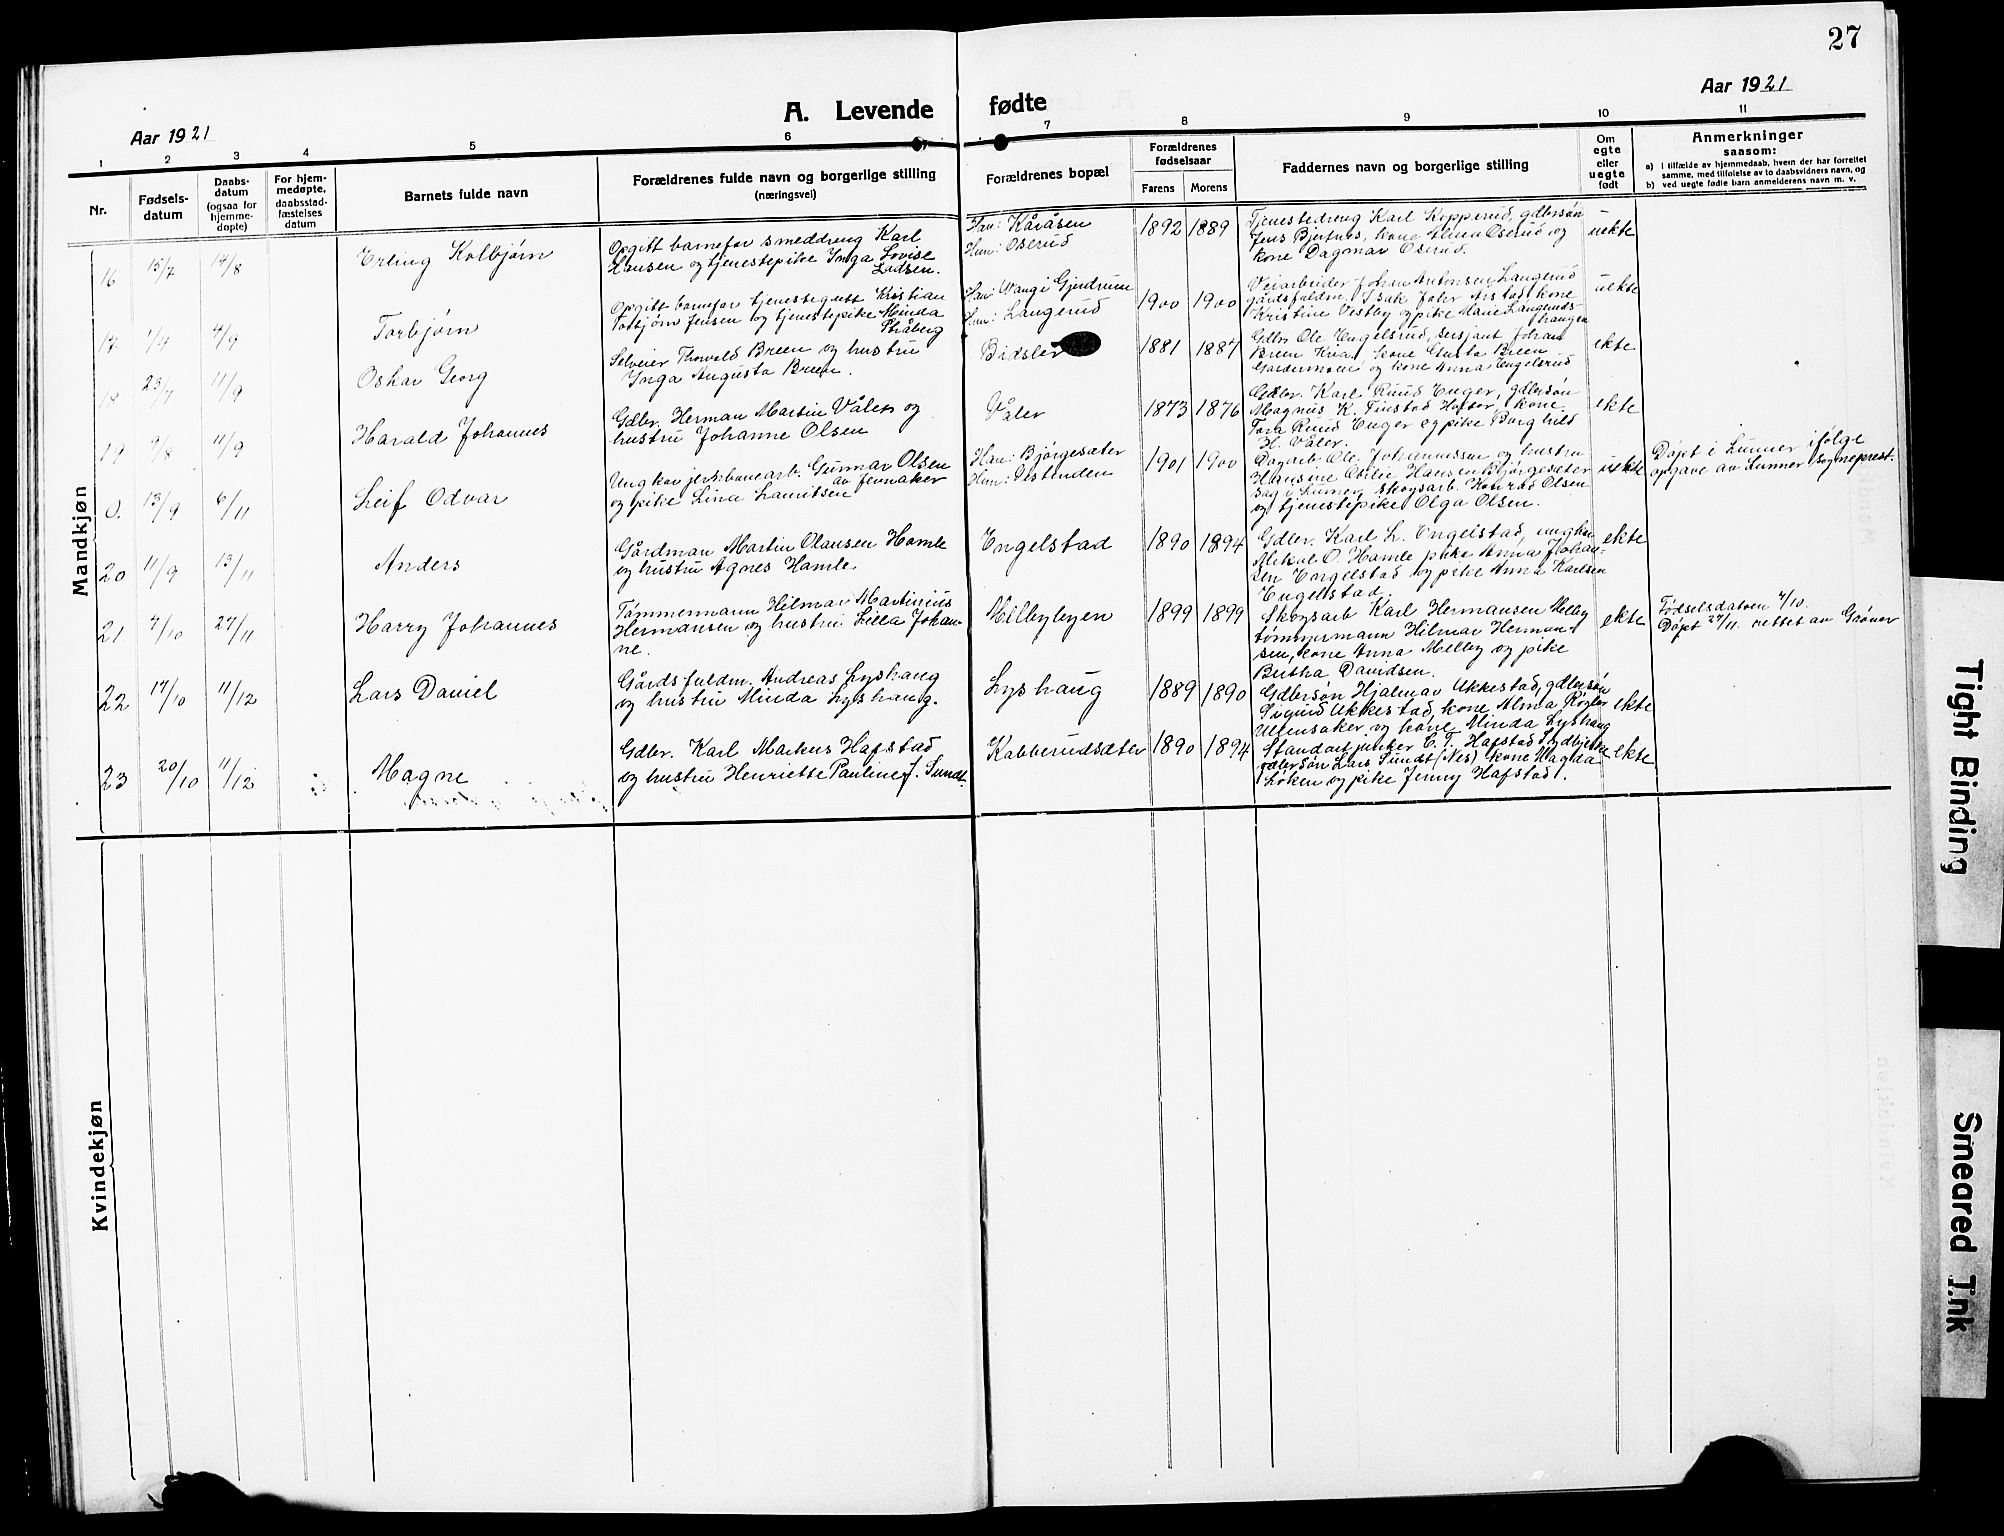 27
Aar 1921
A. Levende fødte
Aar 1921
1 2 3 4 5 6 7 8 9 10 11
Nr.
Fødsels-
datum
Daabs-
datum
(ogsaa for
hjemme-
døpte)
For hjem-
medøpte,
daabsstad-
fæstelses
datum
Barnets fulde navn
Forældrenes fulde navn og borgerlige stilling
(næringsvei)
Forældrenes bopæl
Forældrenes
fødselsaar
Farens Morens
Faddernes navn og borgerlige stilling
Om
egte
eller
uegte
født
Anmerkninger
saasom:
a) i tilfælde av hjemmedaab, hvem der har forrettet
samme, med tilføielse av to daabsvidners navn, og
b) ved uegte fødte barn anmelderens navn m. v.
Mandkjøn
16 15/7 14/8 Erling Kolbjørn
Opgitt barnefar smeddreng Karl
Hansen og tjenestepike Inga Lovise
Ladsen.
Han: Kåråsen
Hun: Oserud
1892 1889
Tjenestedreng Karl Kopperud, gdbersøn
Jens Bjertnes, kone Alma Oserud og
kone Dagmar Oserud.
uekte
17 1/4 4/9 Torbjørn
Opgitt barnefar tjenestegutt Kristian
Torbjørn Jensen og tjenestepike Minda
Stråberg
Han: Wang i Gjerdrum
Hun: Langerud
1900 1900
Veiarbeider Johan Antonsen Langerud
gårdsfuldm. Isak Joler Årstad, kone
Kristine Vestby og pike Marie Langeruds-
haugen
uekte
18 23/7 11/9 Oskar Georg
Selveier Thorvald Breen og hustru
Inga Augusta Breen.
Bidsler
1881 1887
Gdbr. Ole Engelsrud, sersjant Johan
Breen Kviar, kone Gusta Breen
Gardermoen og kone Anna Engelsrud
ekte
19 9/8 11/9 Harald Johannes
Gdbr. Herman Martin Våler og
hustru Johanne Olsen
Våler
1873 1876
Gdbr. Karl Ruud Enger, gdbersøn
Magnus K. Finstad Holter, kone
Tora Ruud Enger og pike Borghild
H. Våler.
ekte
0. 13/9 6/11 Leif Odvar
Ungkar jernbanearb. Gunnar Olsen
av Jevnaker
og pike Lina Lauritsen
Han: Bjørgesæter
Hun: Vestenden
1901 1900
Dagarb. Ole Johannessen og hustru
Hansine Otilie Hansen Bjørgesæter
Sag i Lunner, skogsarb. Konrad Olsen
og tjenestepike Olga Olsen.
uekte
Døpt i Lunner ifølge
opgave av Lunner sogneprest.
20 11/9 13/11 Anders
Gårdman Martin Olausen Hamle
og hustru Agnes Hamle.
Engelstad
1890 1894
Gdbr. Karl L. Engelstad, ungkar
Mikal O. Hamle pike Anna Johan-
sen Engelstad og pike Anna Karlsen
Engelstad.
ekte
21. 4/10 27/11 Harry Johannes
Tømmermann Hilmar Martinius
Hermansen og hustru Lilla Johan-
ne.
Melbybyen
1899 1899
Skogsarb Karl Hermansen Melby
tømmermann Hilmar Herman-
sen, kone Anna Melby og pike
Bertha Davidsen.
ekte
Fødselsdatoen 4/10.
Døpt 27/11 rettet av Grøner
22 14/10 11/12 Lars Daniel
Gårdsfuldm. Andreas Lyshaug
og hustru Minda Lyshaug.
Lyshaug
1889 1890
Gdbersøn Hjalmar Ukkestad, gdbersøn
Sigurd Ukkestad, kone Alma Røgler
Ullensaker og kone Minda Lyshaug
ekte
23 20/10 11/12 Magne
Gdbr. Karl Markus Hafstad
og hustru Henriette Pauline J. Sundt.
Kabberudsæter
1890 1894
Standartjunker C. F. Hafstad
gdbersøn Lars Sundt (Nes) kone Magda
Løken og pike Jenny Hafstad.
ekte
Kvindekjøn
Tight Binding
Smeared Ink